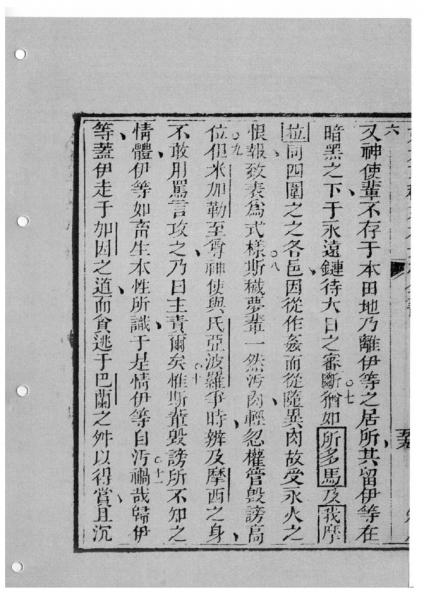 六
又神使輩不存于本田地乃離伊等之居所其留伊等在
暗黑之下于永遠鏈待大日之審斷○七猶如所多馬及我摩
拉同四圍之之各邑因從作姦而從隨異肉故受永火之
恨報致表爲式樣○八斯穢夢輩一然汚肉輕忽權管毀謗高
位○九但米加勒至尊神使與氐亞波羅爭時辨及摩西之身
不敢用罵言攻之乃曰主責爾矣○十惟斯輩毀謗所不知之
情體伊等如畜生本性所識于是情伊等自汚○十一禍哉歸伊
等蓋伊走于加因之道而貪逃于巴蘭之舛以得賞且沉